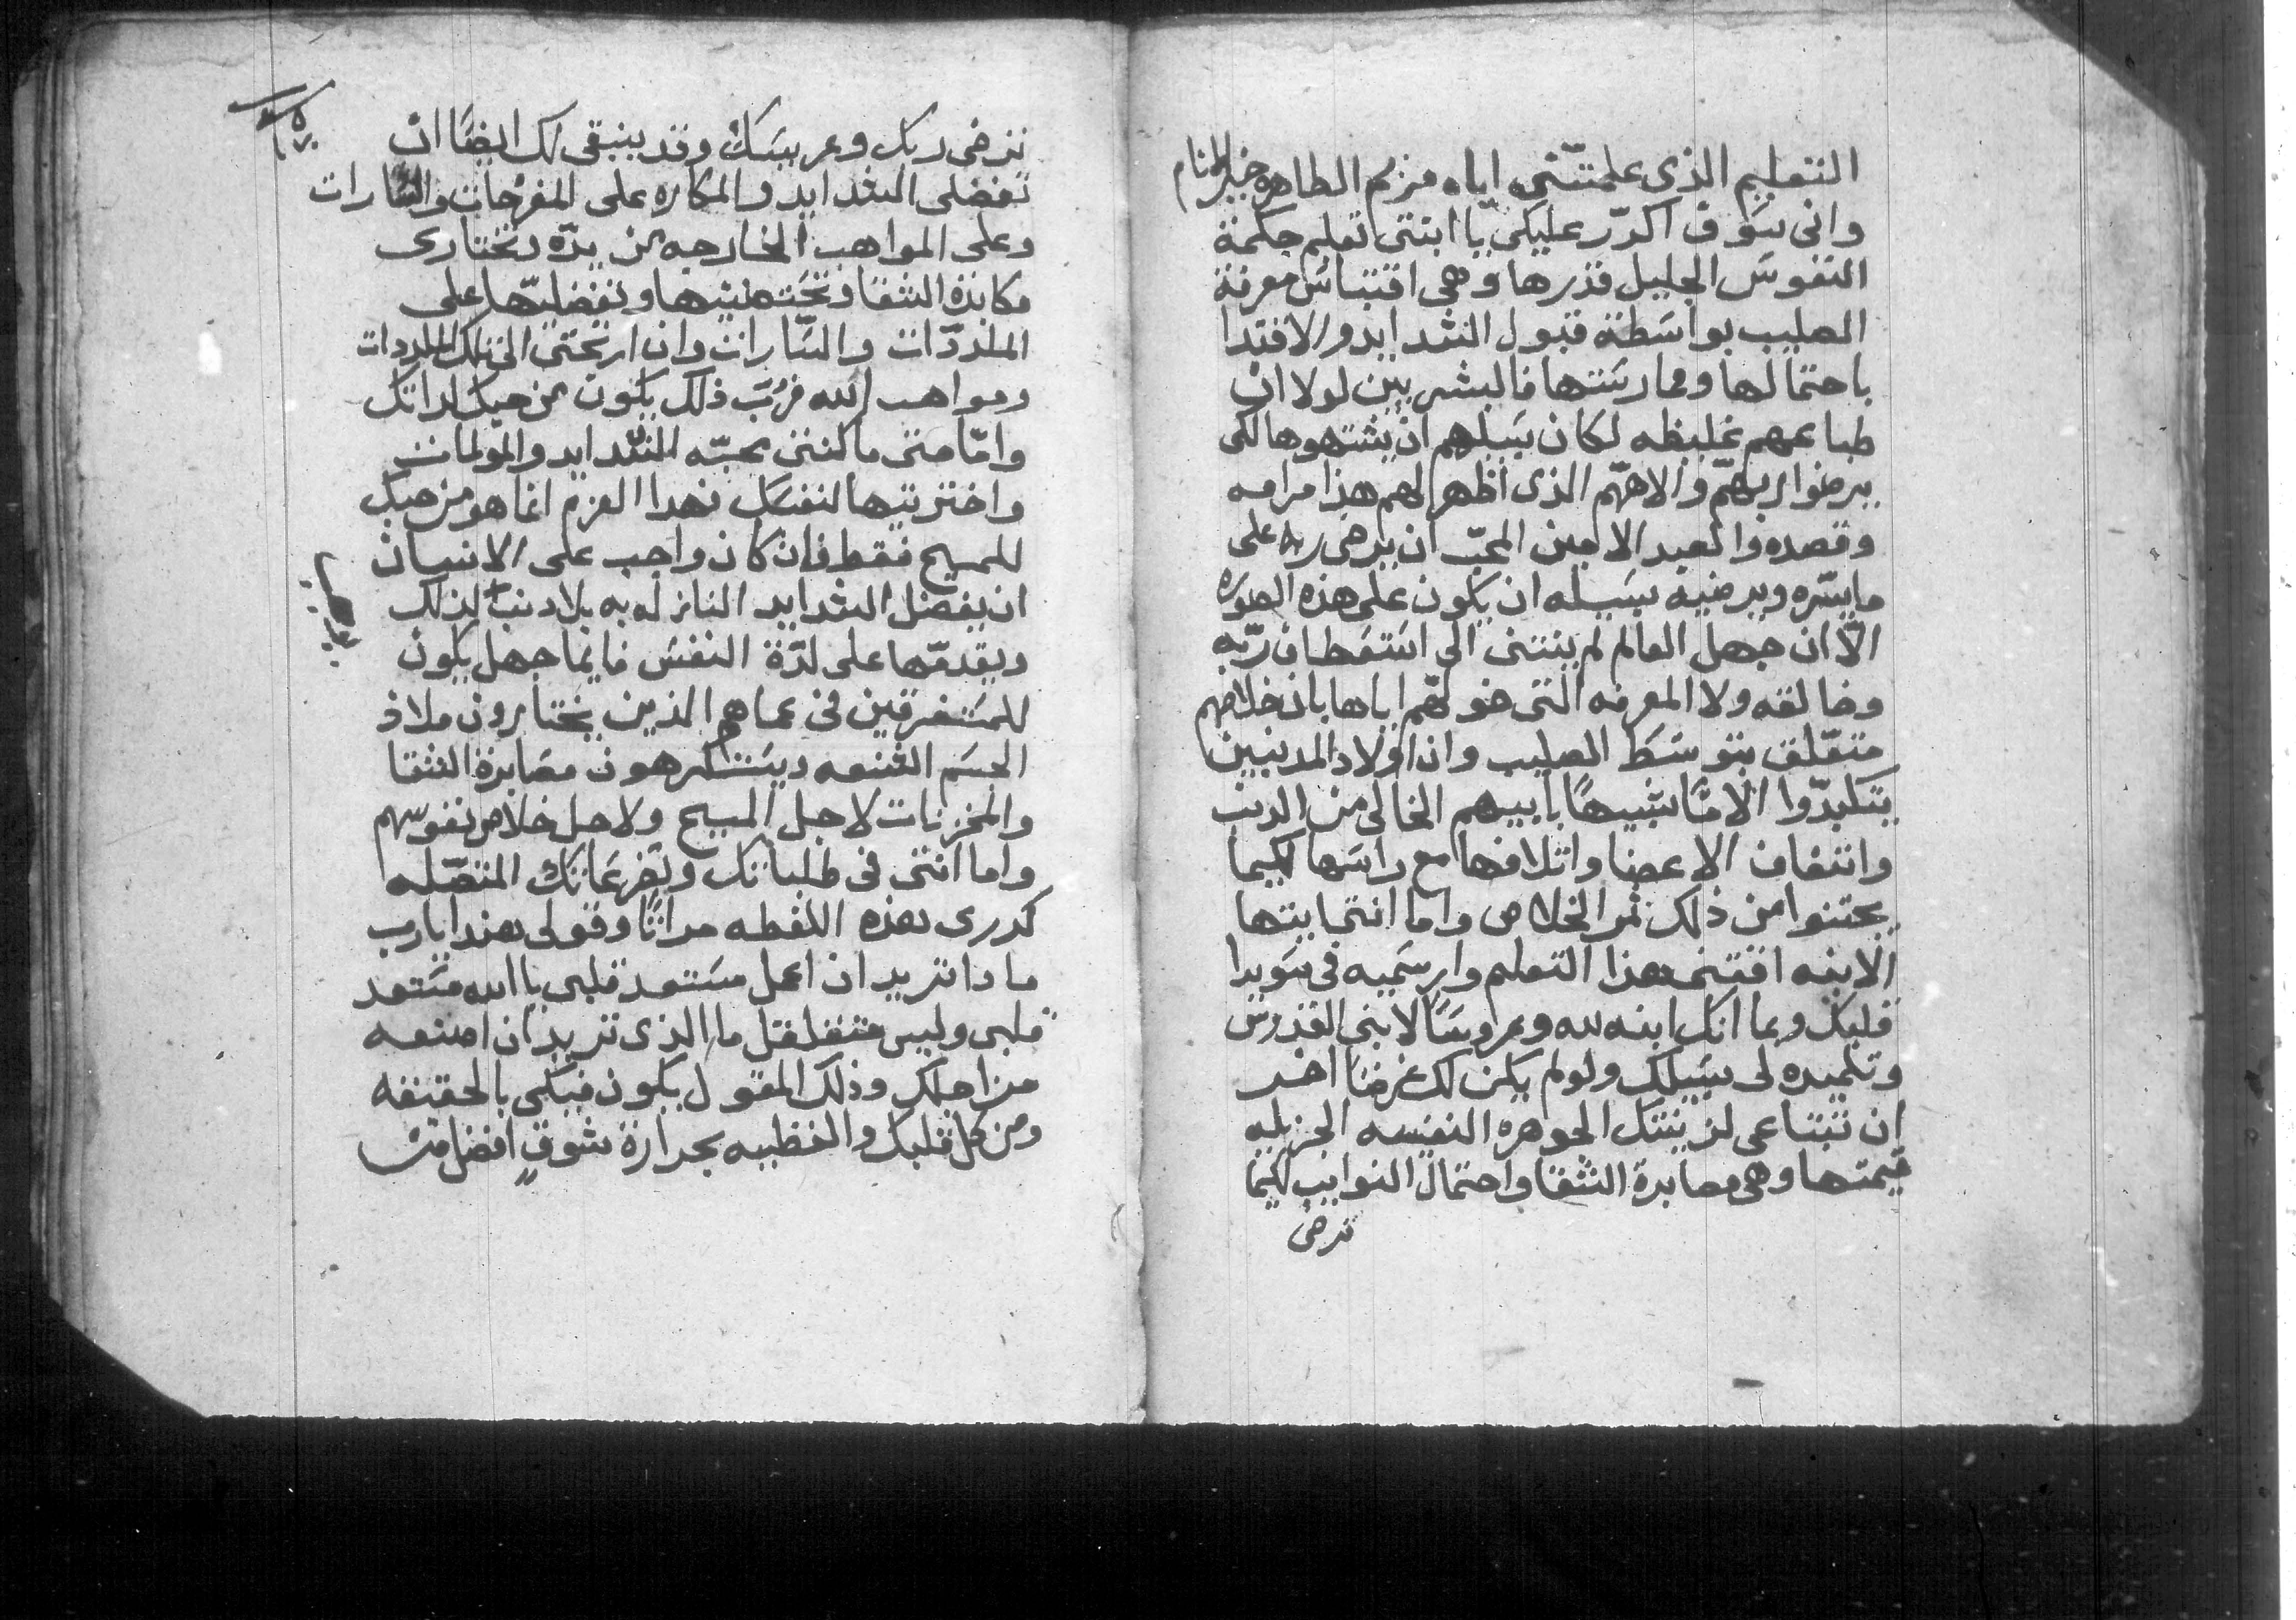 التعليم الذى علمتنى اياه مريم الطاهره خير الانام
وانى سوف اكرّر عليكى يا ابنتى تعليم حكمة
النفوس الجليل قدرها وهى اقتباس معرفة
الصليب بواسطة قبول الشدايد والاقتدا
باحتمالها وممارستها فالبشريين لولا ان
طباعهم غليظه لكان سبيلهم ان يشتهوها لكى
يرضوا ربهم والاههم الذى اظهر لهم هذا مرامه
وقصده والعبد الامين المحبّ ان يرضى ربه على
ما يسّره ويرضيه سبيله ان يكون على هذه الصوره
الّا ان جهل العالم لم ينتنى الى استعطاف ربّه
وخالقه ولا المعرفه التى خولهم اياها بان خلاصهم
متعّلق بتوسط الصليب وان اولاد المدنبين
يتكبدّوا الامًا شبيهًا بابيهم الخالى من الدنب
واتفاق الاعضا وائلافها مع راسها لكيما
يجتنوا من ذلك ثمر الخلاص واما انتى ايتها
الابنه اقتنى هذا التعلم وارسميه فى سويدا
قلبك وبما انك ابنه لله وعروسًا لابنى القدوس
وتلميده لى سبيلك ولو لم يكن لك غرضًا اخر
ان تبتاعى لزينتك الجوهره النفيسه الجزيله
قيمتها وهى مصابرة الشقا واحتمال النوايب لكيما
ترضى
ترضى ربك وعريسك وقد ينبقى لك ايضًا ان
تفضلى الشدايد والمكاره على المفرحات والسّارات
وعلى المواهب الخارجه من يدّه وتختارى
مكابدة الشقا وتحتضنيها وتفضليّها على
الملدّات والسّارات وان ارتحتى الى تلك الملدّدات
ومواهب الله فرُبّ ذلك يكون من حبك لداتك
وامّا متى ما كنتى محبّه الشّدايد والمولمات
واخترتيها لنفسك فهدا العزم انما هو من حبك
للمسيح فقط فان كان واجب على الانسان
ان يفضل الشدايد النازله به بلا دنب لذلك
ويقدمّها على لدّة النفس فايما جهل يكون
للمستغرقين فى عماهم الذين يختارون ملاذ
الجسم الشنعه ويستكرهون مصابرة الشقا
والمحزنات لاجل المسيح ولاجل خلاص نفوسهم
واما انتى فى طلباتك وتضرعاتك المتصّله
كررى هذه اللفطه مرارًا وقولى هكدا يارب
مادا تريد ان اعمل مستعد قلبى يا الله مستعد
قلبى وليس فقل ما الذى تريد ان اصنعه
من اجلك وذلك المقول يكون فيكى بالحقيقه
ومن كل قلبك والفظيه بحرارة شوق افضل من